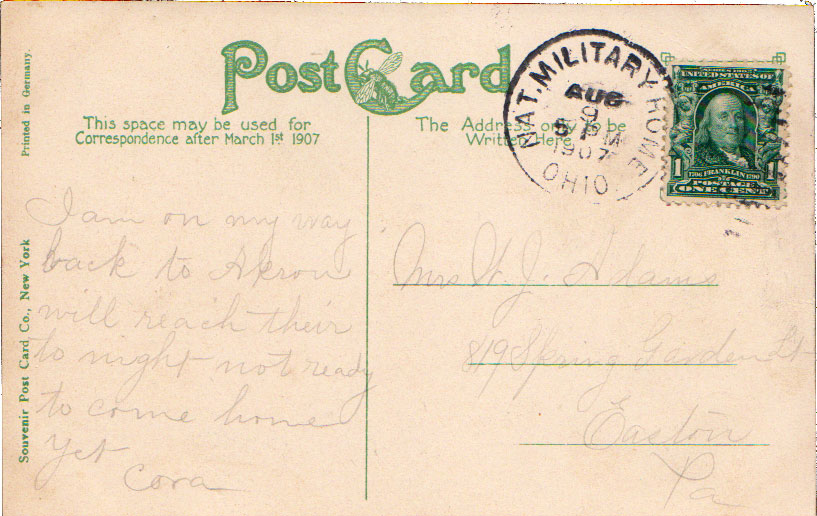 Post Card
This space may be used for
Correspondence after March 1st 1907
The Address only to be
Written Here.
NAT. MILITARY HOME
AUG
9
5 PM
1907
OHIO
UNITED STATES OF
AMERICA
1 1
1706 FRANKLIN 1790
POSTAGE
ONE CENT
Printed in Germany.
Souvenir Post Card Co., New York
I am on my way
back to Akron
will reach their
to night not ready
to come home
yet
Cora
Mrs W. J. Adams
819 Spring Garden St
Easton
Pa